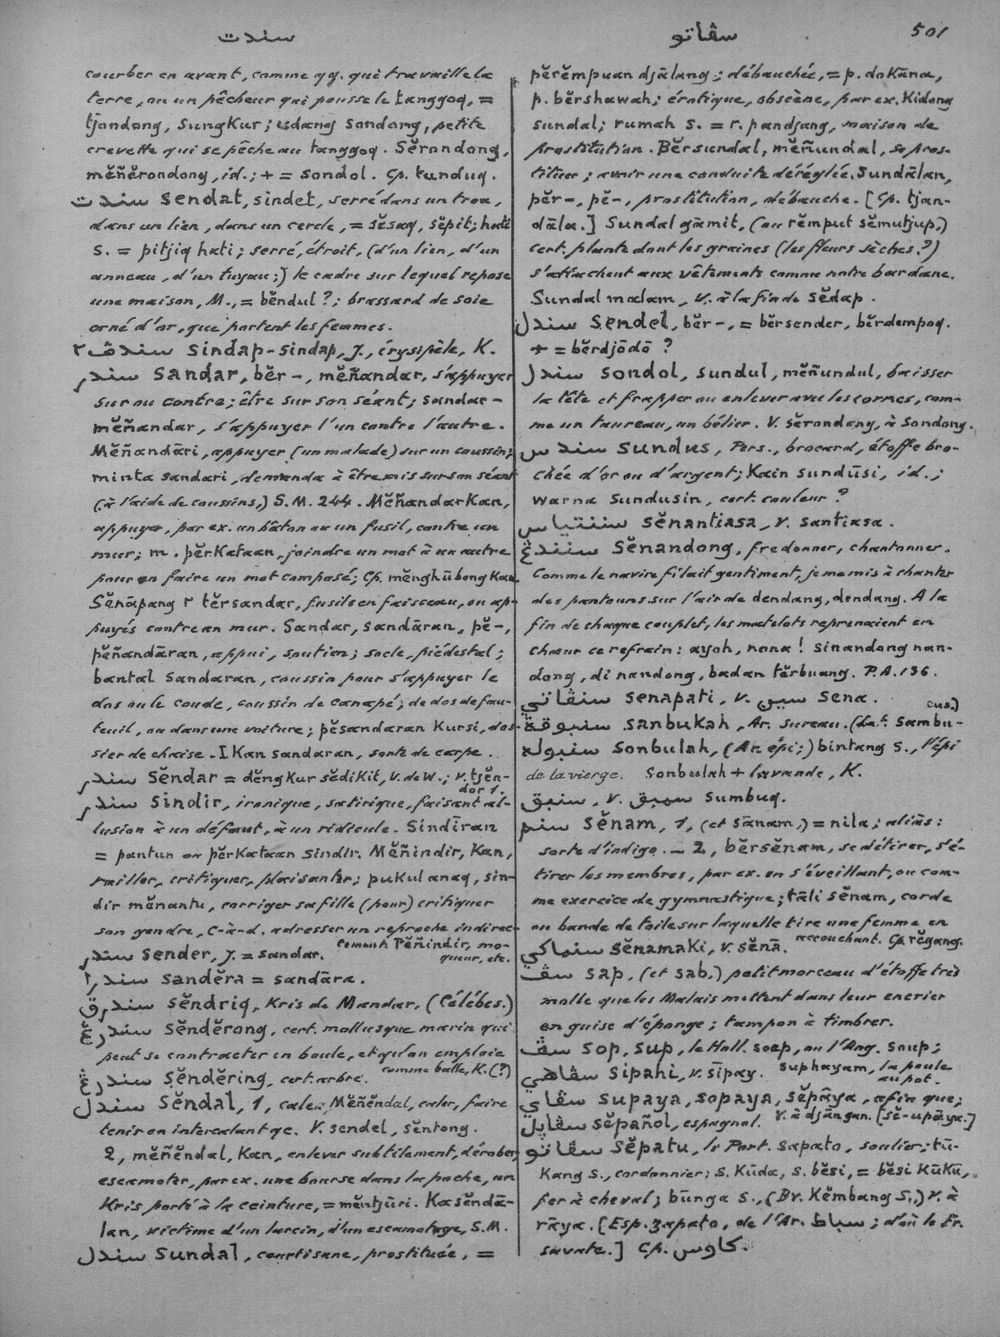 سندت
سڤاتو
501
courber en avant, comme qq. qui travaille la
terre, ou un pêcheur qui pousse le tanggoq, =
tjondong, sungkur; udang sondong, petite
crevette qui se pêche au tanggoq. Sĕrondong,
mĕñĕrondong, id.; + = sondol. Cp. tunduq.
سندت sendat, sindet, serré dans un trou,
dans un lien, dans un cercle, = sĕsaq, sĕpit; hati
s. = pitjiq hati; serré, étroit, (d'un lien, d'un
anneau, d'un tuyau;) le cadre sur lequel repose
une maison, M., = bĕndul ?; brassard de soie
orné d'or, que portent les femmes.
سندڤ ٢ sindap-sindap, J., érysipèle, K.
سندر sandar, bĕr-, mĕñandar, s'appuyer
sur ou contre; être sur son séant; sandar-
mĕñandar, s'appuyer l'un contre l'autre.
Mĕñandāri, appuyer (un malade) sur un coussin;
minta sandari, demanda à être mis sur son séant
(à l'aide de coussins,) S.M. 244. Mĕñandarkan,
appuyer, par ex. un bâton ou un fusil, contre un
mur; m. pĕrkataan, joindre un mot à un autre
pour en faire un mot composé; Cp. mĕnghūbongkan.
Sĕnāpang ٢ tĕrsandar, fusils en faisceau, ou ap-
puyés contre un mur. Sandar, sandāran, pĕ-,
pĕñandāran, appui, soutien; socle, piédestal;
bantal sandaran, coussin pour s'appuyer le
dos ou le coude, coussin de canapé; de dos de fau-
teuil, ou dans une voiture; pĕsandaran kursi, dos-
sier de chaise. Ikan sandaran, sorte de carpe.
سندر sĕndar = dĕngkur sĕdikit, V. de W.; v. tjĕn-
dor 1.
سندر sindir, ironique, satirique, faisant al-
lusion à un défaut, à un ridicule. Sindīran
= pantun ou pĕrkataan sindir. Mĕñindir, kan,
railler, critiquer, plaisanter; pukul anaq, sin-
dir mĕnantu, corriger sa fille (pour) critiquer
son gendre, c-à-d. adresser un reproche indirec-
tement. Pĕñindir, mo-
queur, etc.
سندر sender, J. = sandar.
سندرا sandĕra = sandāra.
سندرق sĕndriq, kris de Mandar, (Célèbes.)
سندرڠ sĕndĕrong, cert. mollusque marin qui
peut se contracter en boule, et qu'on emploie
comme balle, K. (?)
سندرڠ sĕndĕring, cert. arbre.
سندل sĕndal, 1, cale; Mĕñĕndal, caler, faire
tenir en intercalant qc. V. sendel, sĕntong.
2, mĕñĕndal, kan, enlever subtilement, dérober
escamoter, par ex. une bourse dans la poche, un
kris porté à la ceinture, = mĕntjūri. Kasĕndā-
lan, victime d'un larcin, d'un escamotage, S.M.
سندل sundal, courtisane, prostituée, =
pĕrĕmpuan djālang; débauchée, = p. dokāna,
p. bĕrshawah; érotique, obscène, par ex. Kidong
sundal; rumah s. = r. pandjang, maison de
prostitution. Bĕrsundal, mĕñundal, se pros-
tituer; avoir une conduite déréglée. Sundālan,
pĕr-, pĕ-, prostitution, débauche. [Cp. tjan-
dāla.] Sundal gāmit, (ou rĕmput sĕmutjup,)
cert. plante dont les graines (les fleurs sèches?)
s'attachent aux vêtements comme notre bardane.
Sundal malam, v. à la fin de sĕdap.
سندل sendel, bĕr-, = bĕrsender, bĕrdempoq.
+ = bĕrdjōdō ?
سندل sondol, sundul, mĕñundul, baisser
la tête et frapper ou enlever avec les cornes, com-
me un taureau, un bélier. V. sĕrondong, à sondong.
سندس sundus, Pers., brocard, étoffe bro-
chée d'or ou d'argent; kain sundūsi, id.;
warna sundusin, cert. couleur ?
سنتياس sĕnantiasa, v. santiasa.
سنندڠ sĕnandong, fredonner, chantonner.
Comme le navire filait gentiment, je me mis à chanter
des pantouns sur l'air de dendang, dendang. A la
fin de chaque couplet, les matelots reprenaient en
chœur ce refrain: ayoh, nona! sinandong nan-
dong, di nandong, badan tĕrbuang. P.A. 136.
سنڤاتي senapati, v. سين sena.
سنبوقة sanbukah, Ar. sureau. (Lat. sambu-
cus.)
سنبوله sonbulah, (Ar. épi;) bintang s., l'épi
de la vierge. Sonbulah + lavande, K.
سنبق, v. سمبق sumbuq.
سنم sĕnam, 1, (et sānam,) = nila; aliās:
sorte d'indigo. — 2, bĕrsĕnam, se détirer, s'é-
tirer les membres, par ex. en s'éveillant, ou com-
me exercice de gymnastique; tāli sĕnam, corde
ou bande de toile sur laquelle tire une femme en
accouchant. Cp. rĕgang.
سنماكي sĕnamaki, v. sĕnā.
سڤ sap, (et sab,) petit morceau d'étoffe très
molle que les Malais mettent dans leur encrier
en guise d'éponge; tampon à timbrer.
سڤ sop, sup, le Holl. soep, ou l'Ang. soup;
suphayam, la poule
au pot.
سڤاهي sipahi, v. sīpay.
سڤاي supaya, sopaya, sĕpāya, afin que;
v. à djāngan. [sĕ-upāya.]
سڤايل sĕpañol, espagnol.
سڤاتو sĕpatu, le Port. sapato, soulier; tū-
kang s., cordonnier; s. kūda, s. bĕsi, = bĕsi kūkū,
fer à cheval; būnga s., (Bv. kĕmbang s.,) v. à
rāya. [Esp. zapato, de l'Ar. سباط; d'où le Fr.
savate.] Cp. كاوس.